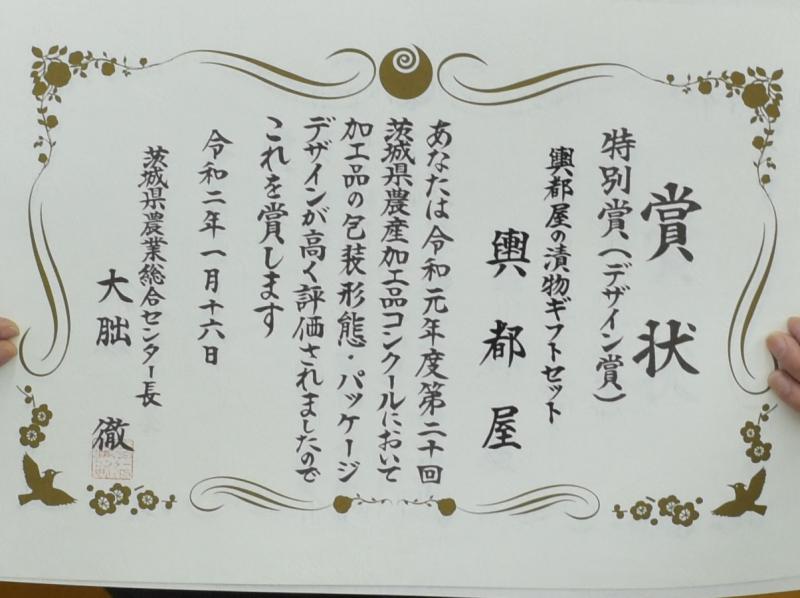 賞状
特別賞（デザイン賞）
輿都屋の漬物ギフトセット
輿都屋
あなたは令和元年度第二十回
茨城県農産加工品コンクールにおいて
加工品の包装形態・パッケージ
デザインが高く評価されましたので
これを賞します
令和二年一月十六日
茨城県農業総合センター長
大朏　徹